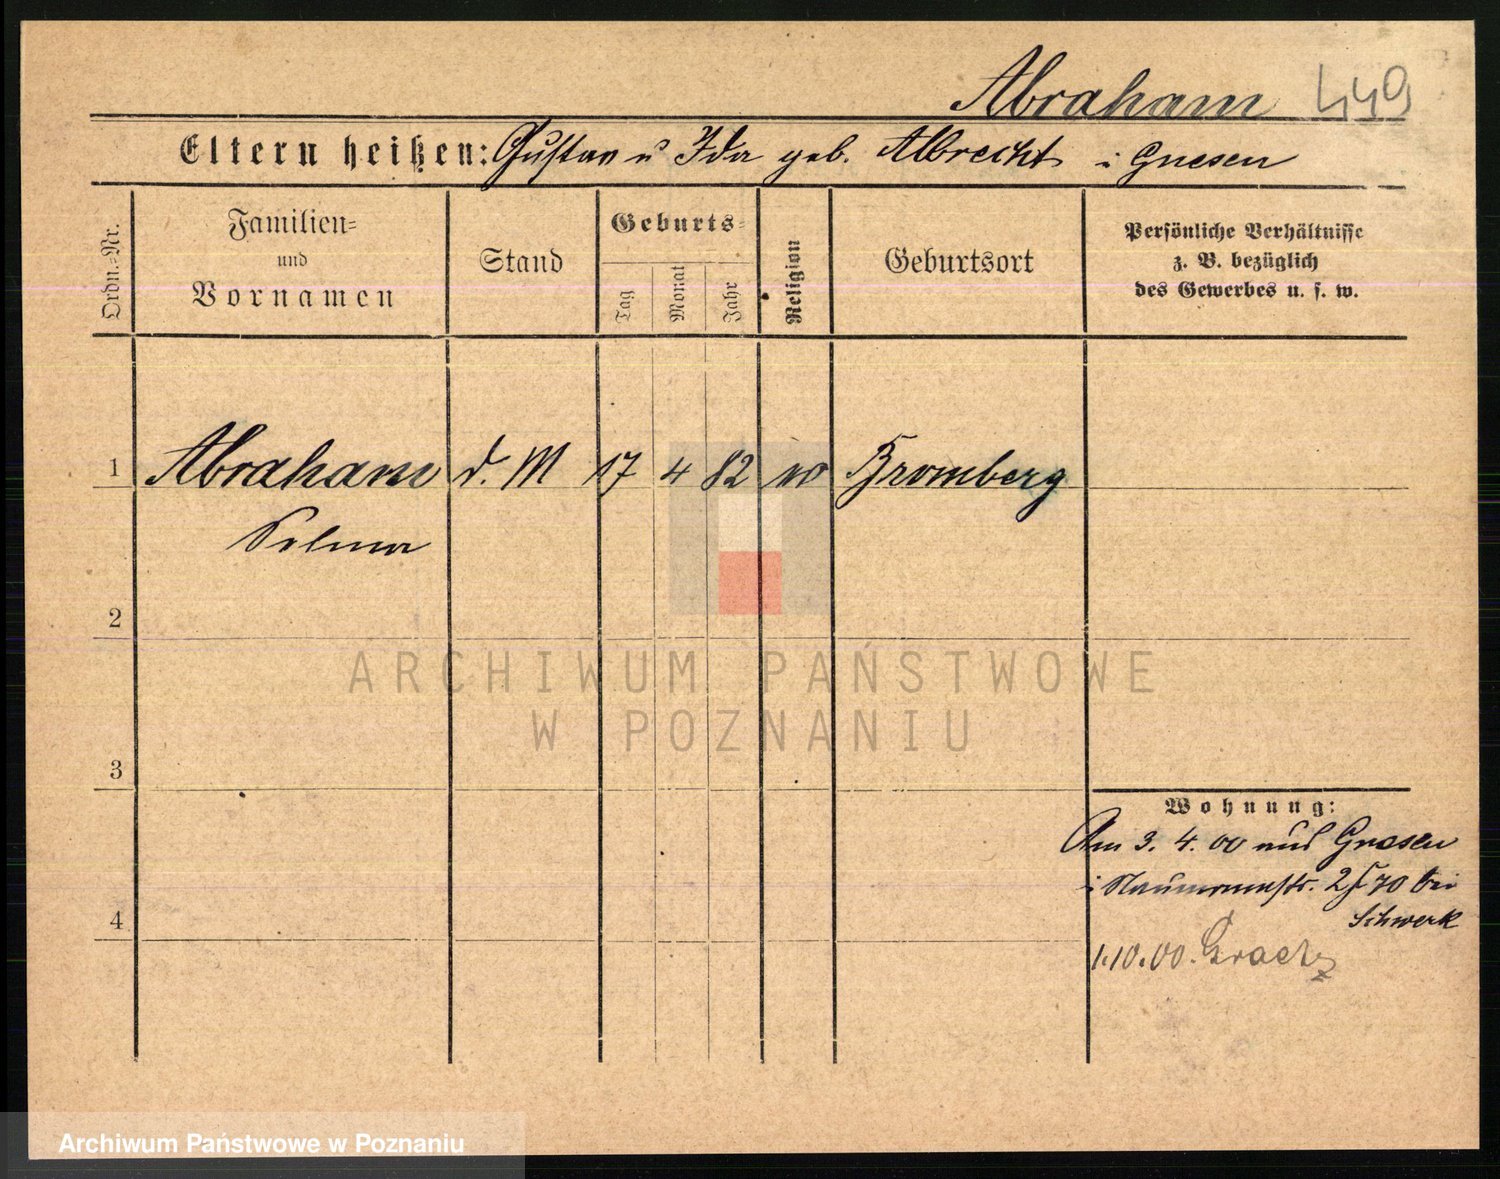 Abraham 449
Eltern heißen: Gustav u Ida geb. Albrecht i Gnesen
Ordn.-Nr.
Familien-
und
Vornamen
Stand
Geburts-
Tag
Monat
Jahr
Religion
Geburtsort
Persönliche Verhältnisse
z. B. bezüglich
des Gewerbes u. s. w.
1 Abraham d. M 17 4 82 Bromberg
Selma
2
ARCHIWUM PAŃSTWOWE
W POZNANIU
3
Wohnung:
Am 3. 4. 00 aus Gnesen
i Naumannstr. bei
4
Schwerk
1.10.00. Graetz
Archiwum Państwowe w Poznaniu